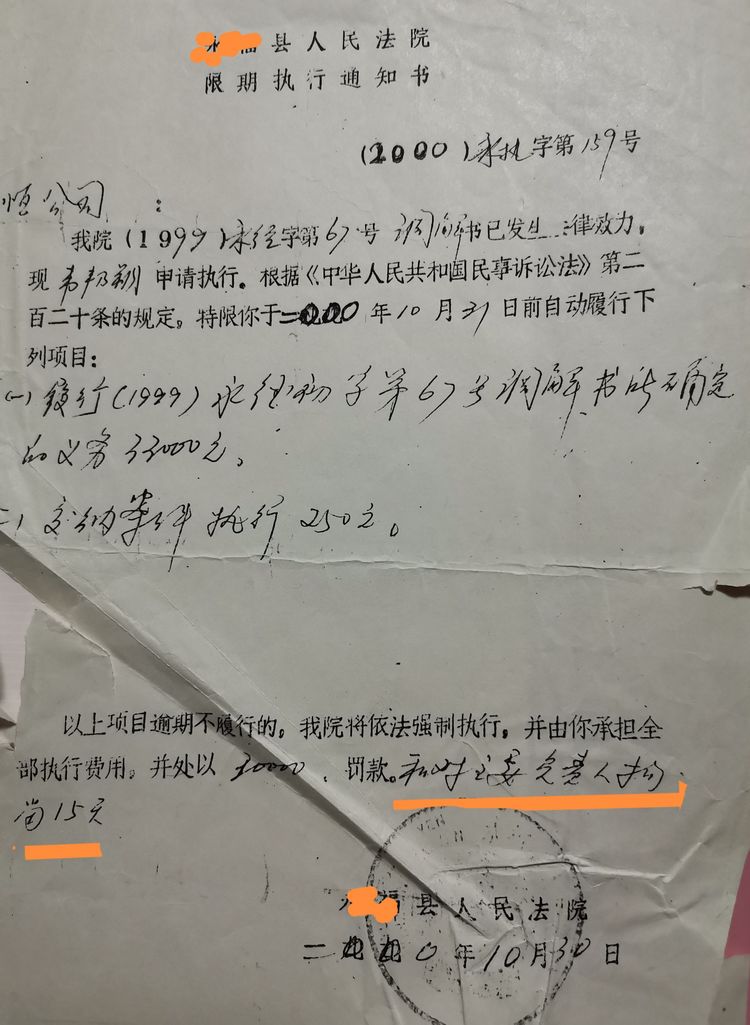 县人民法院
限期执行通知书
(2000)永执字第159号
恒公司:
我院(1999)永经字第67号调解书已发生律效力。
现申请执行。根据《中华人民共和国民事诉讼法》第二
百二十条的规定。特限你于二000年10月31日前自动履行下
列项目:
(一)履行(1999)永经初字第67号调解书所确定
的义务33000元。
交纳案件执行250元。
以上项目逾期不履行的。我院将依法强制执行。并由你承担全
部执行费用。并处以30000、罚款。和对主要负责人拘
留15天
县人民法院
二000年10月30日